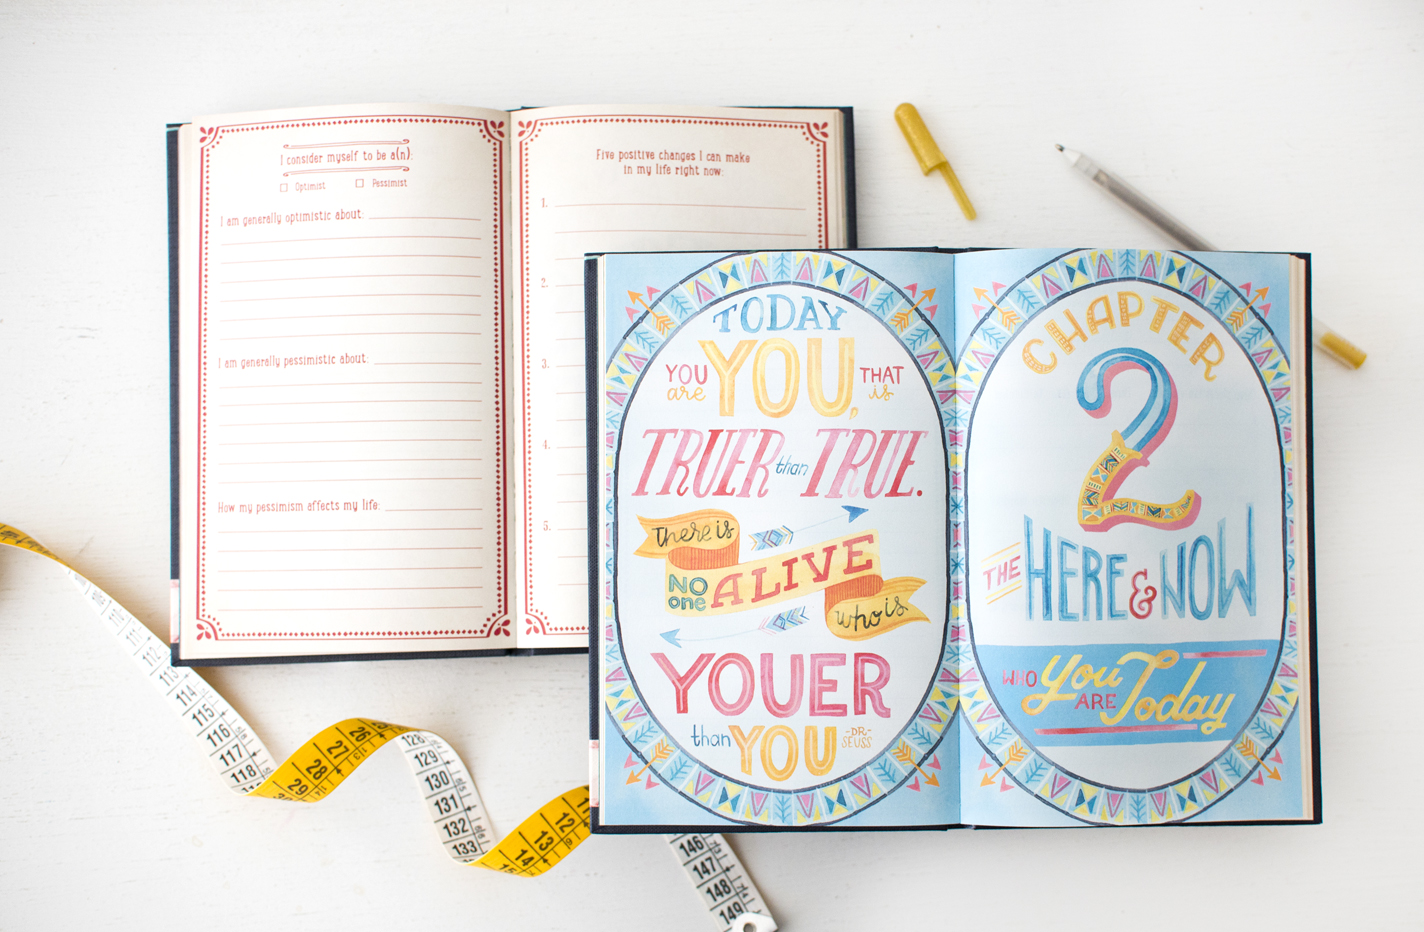 I consider myself to be a(n):
Optimist Pessimist
I am generally optimistic about:
I am generally pessimistic about:
How my pessimism affects my life:
Five positive changes I can make
in my life right now:
1.
2.
3.
4.
5.
TODAY
YOU are YOU, THAT is
TRUER than TRUE.
There is
NO one ALIVE
who is
YOUER
than YOU -DR- SEUSS
CHAPTER
2
THE HERE & NOW
WHO You ARE Today
112
113
114
115
116
117
118
29
28
27
26
128
129
130
131
132
133
14
13
12
146
147
148
149